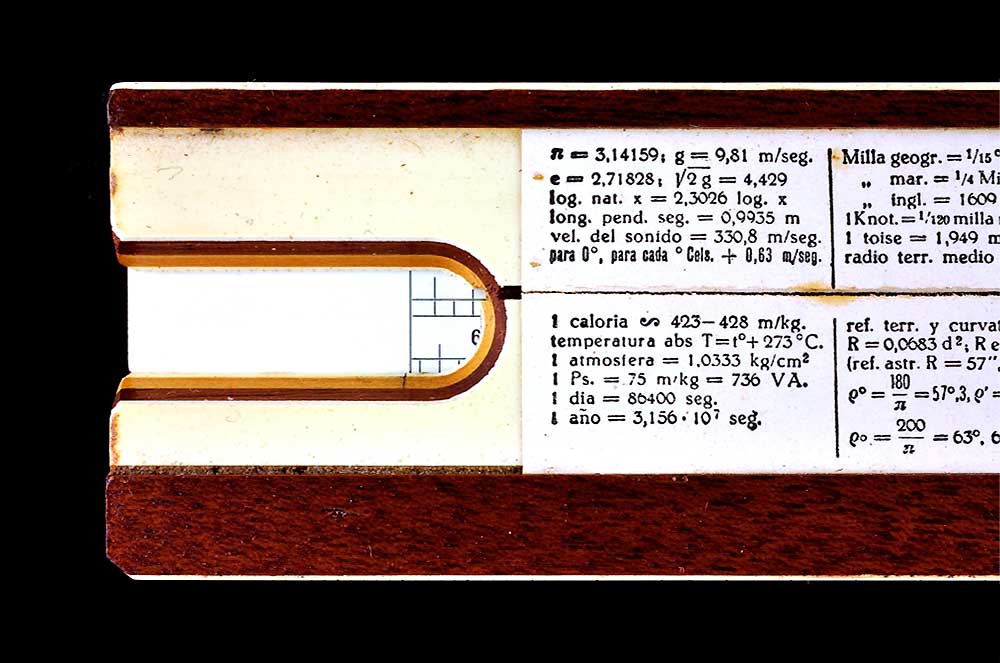 π = 3,14159; g = 9,81 m/seg.
e = 2,71828; √2 g = 4,429
log. nat. x = 2,3026 log. x
long. pend. seg. = 0,9935 m
vel. del sonido = 330,8 m/seg.
para 0°, para cada ° Cels. + 0,63 m/seg.
Milla geogr. = 1/15°
„ mar. = 1/4 Mi
„ ingl. = 1609
1 Knot. = 1/120 milla
1 toise = 1,949 m
radio terr. medio
6
1 caloria ∾ 423–428 m/kg.
temperatura abs T=t°+273°C.
1 atmosfera = 1,0333 kg/cm²
1 Ps. = 75 m/kg = 736 VA.
1 dia = 86400 seg.
1 año = 3,156·10⁷ seg.
ref. terr. y curvat
R = 0,0683 d²; R e
(ref. astr. R = 57",
ϱ° = 180/π = 57°,3, ϱ' =
ϱ° = 200/π = 63°, 6